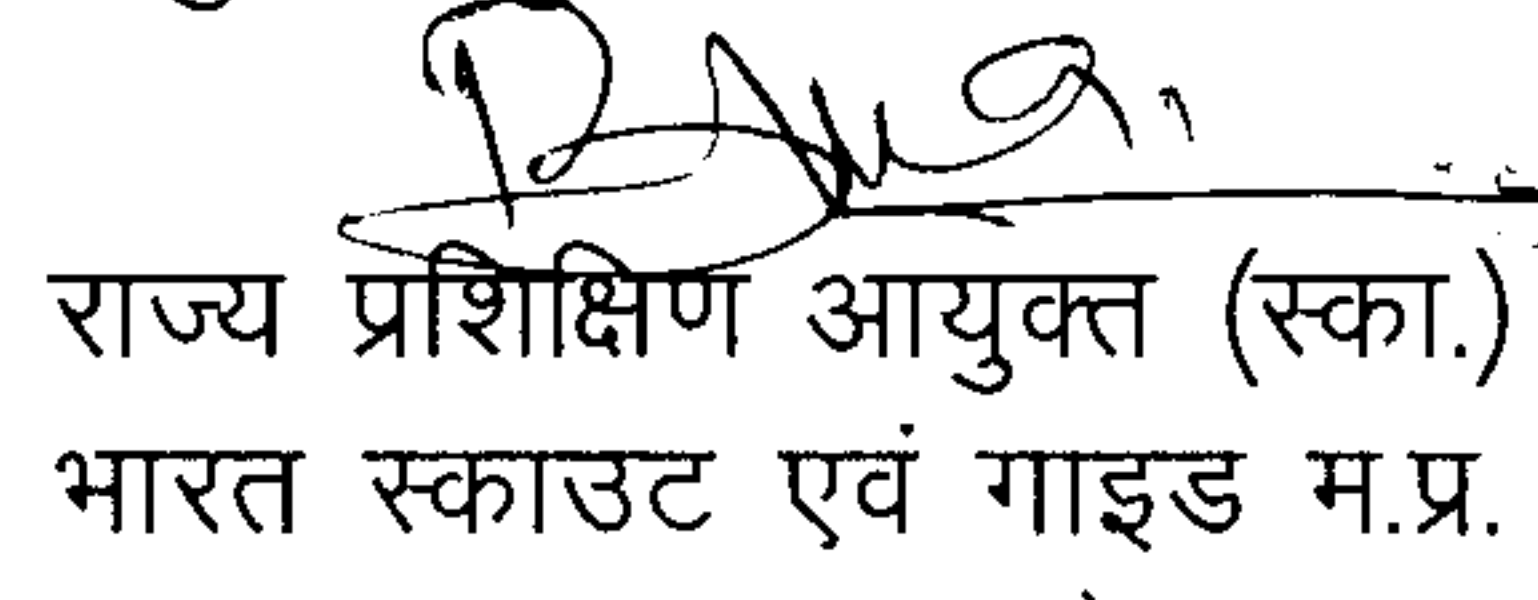 राज्य प्रशिक्षिण आयुक्त (स्का.)
भारत स्काउट एवं गाइड म.प्र.